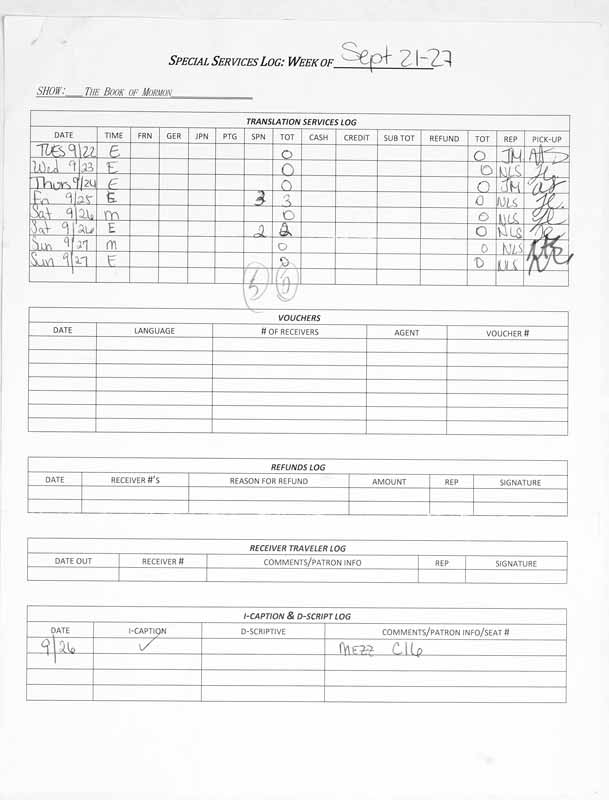 SPECIAL SERVICES LOG: WEEK OF Sept 21-27
SHOW: THE BOOK OF MORMON
TRANSLATION SERVICES LOG
DATE TIME FRN GER JPN PTG SPN TOT CASH CREDIT SUB TOT REFUND TOT REP PICK-UP
TUES 9/22 E 0 0 JM
Wed 9/23 E 0 0 NLS
Thurs 9/24 E 0 0 JM
Fri 9/25 E 3 3 0 NLS
Sat 9/26 m 0 0 NLS
Sat 9/26 E 2 2 0 NLS
Sun 9/27 m 0 0 NLS
Sun 9/27 E 0 0 NLS
5
VOUCHERS
DATE LANGUAGE # OF RECEIVERS AGENT VOUCHER #
REFUNDS LOG
DATE RECEIVER #'S REASON FOR REFUND AMOUNT REP SIGNATURE
RECEIVER TRAVELER LOG
DATE OUT RECEIVER # COMMENTS/PATRON INFO REP SIGNATURE
I-CAPTION & D-SCRIPT LOG
DATE I-CAPTION D-SCRIPTIVE COMMENTS/PATRON INFO/SEAT #
9/26 ✓ MEZZ C16